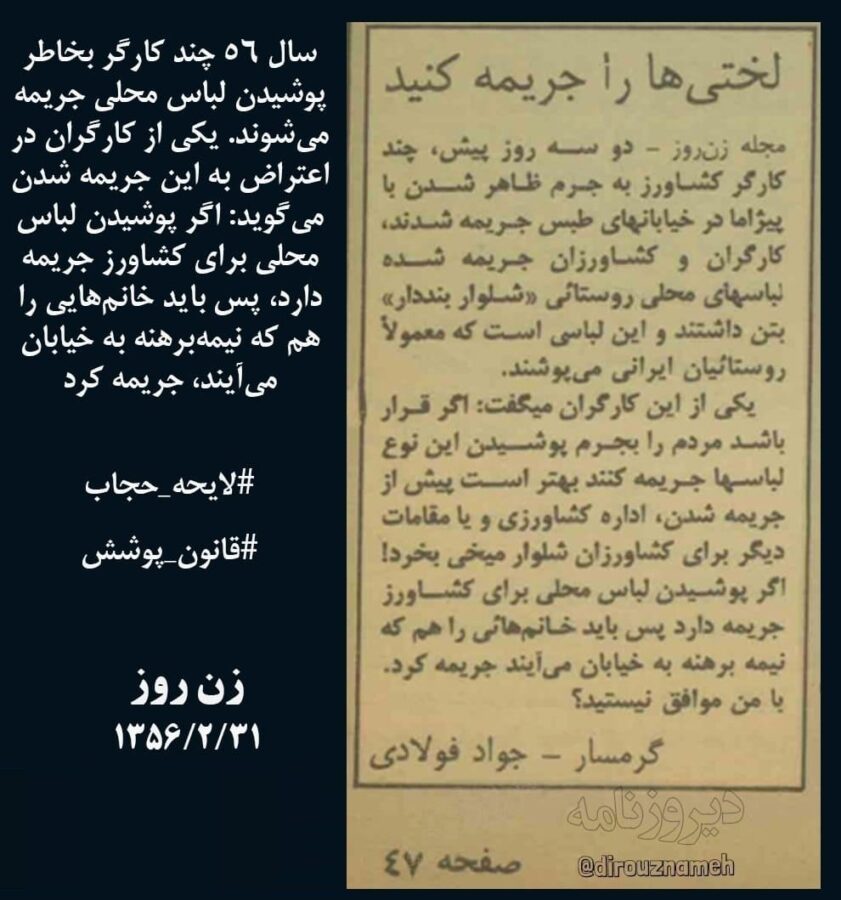 سال ۵۶ چند کارگر بخاطر
پوشیدن لباس محلی جریمه
می‌شوند. یکی از کارگران در
اعتراض به این جریمه شدن
می‌گوید: اگر پوشیدن لباس
محلی برای کشاورز جریمه
دارد، پس باید خانم‌هایی را
هم که نیمه‌برهنه به خیابان
می‌آیند، جریمه کرد
#لایحه_حجاب
#قانون_پوشش
زن روز
۱۳۵۶/۲/۳۱
لختی‌ها را جریمه کنید
مجله زن‌روز – دو سه روز پیش، چند
کارگر کشاورز به جرم ظاهر شدن با
پیژاما در خیابانهای طبس جریمه شدند،
کارگران و کشاورزان جریمه شده
لباسهای محلی روستائی «شلوار بنددار»
بتن داشتند و این لباسی است که معمولاً
روستائیان ایرانی می‌پوشند.
یکی از این کارگران میگفت: اگر قرار
باشد مردم را بجرم پوشیدن این نوع
لباسها جریمه کنند بهتر است پیش از
جریمه شدن، اداره کشاورزی و یا مقامات
دیگر برای کشاورزان شلوار میخی بخرد!
اگر پوشیدن لباس محلی برای کشاورز
جریمه دارد پس باید خانم‌هائی را هم که
نیمه برهنه به خیابان می‌آیند جریمه کرد.
با من موافق نیستید؟
گرمسار – جواد فولادی
دیروزنامه
@dirouznameh
صفحه ۴۷